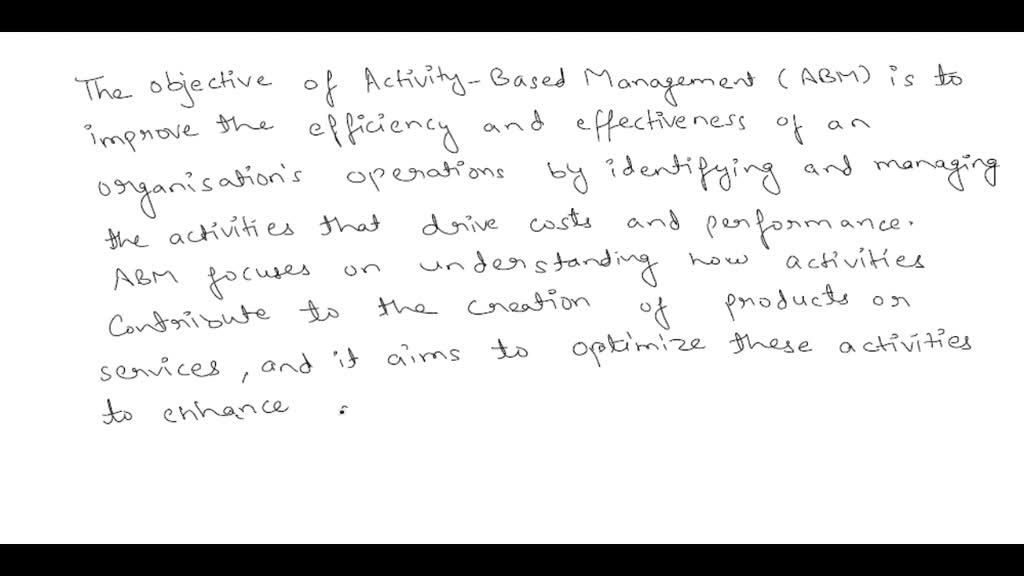 The objective of Activity-Based Management (ABM) is to
improve the efficiency and effectiveness of an
organisation's operations by identifying and managing
the activities that drive costs and performance.
ABM focuses on understanding how activities
Contribute to the creation of products or
services, and it aims to optimize these activities
to enhance